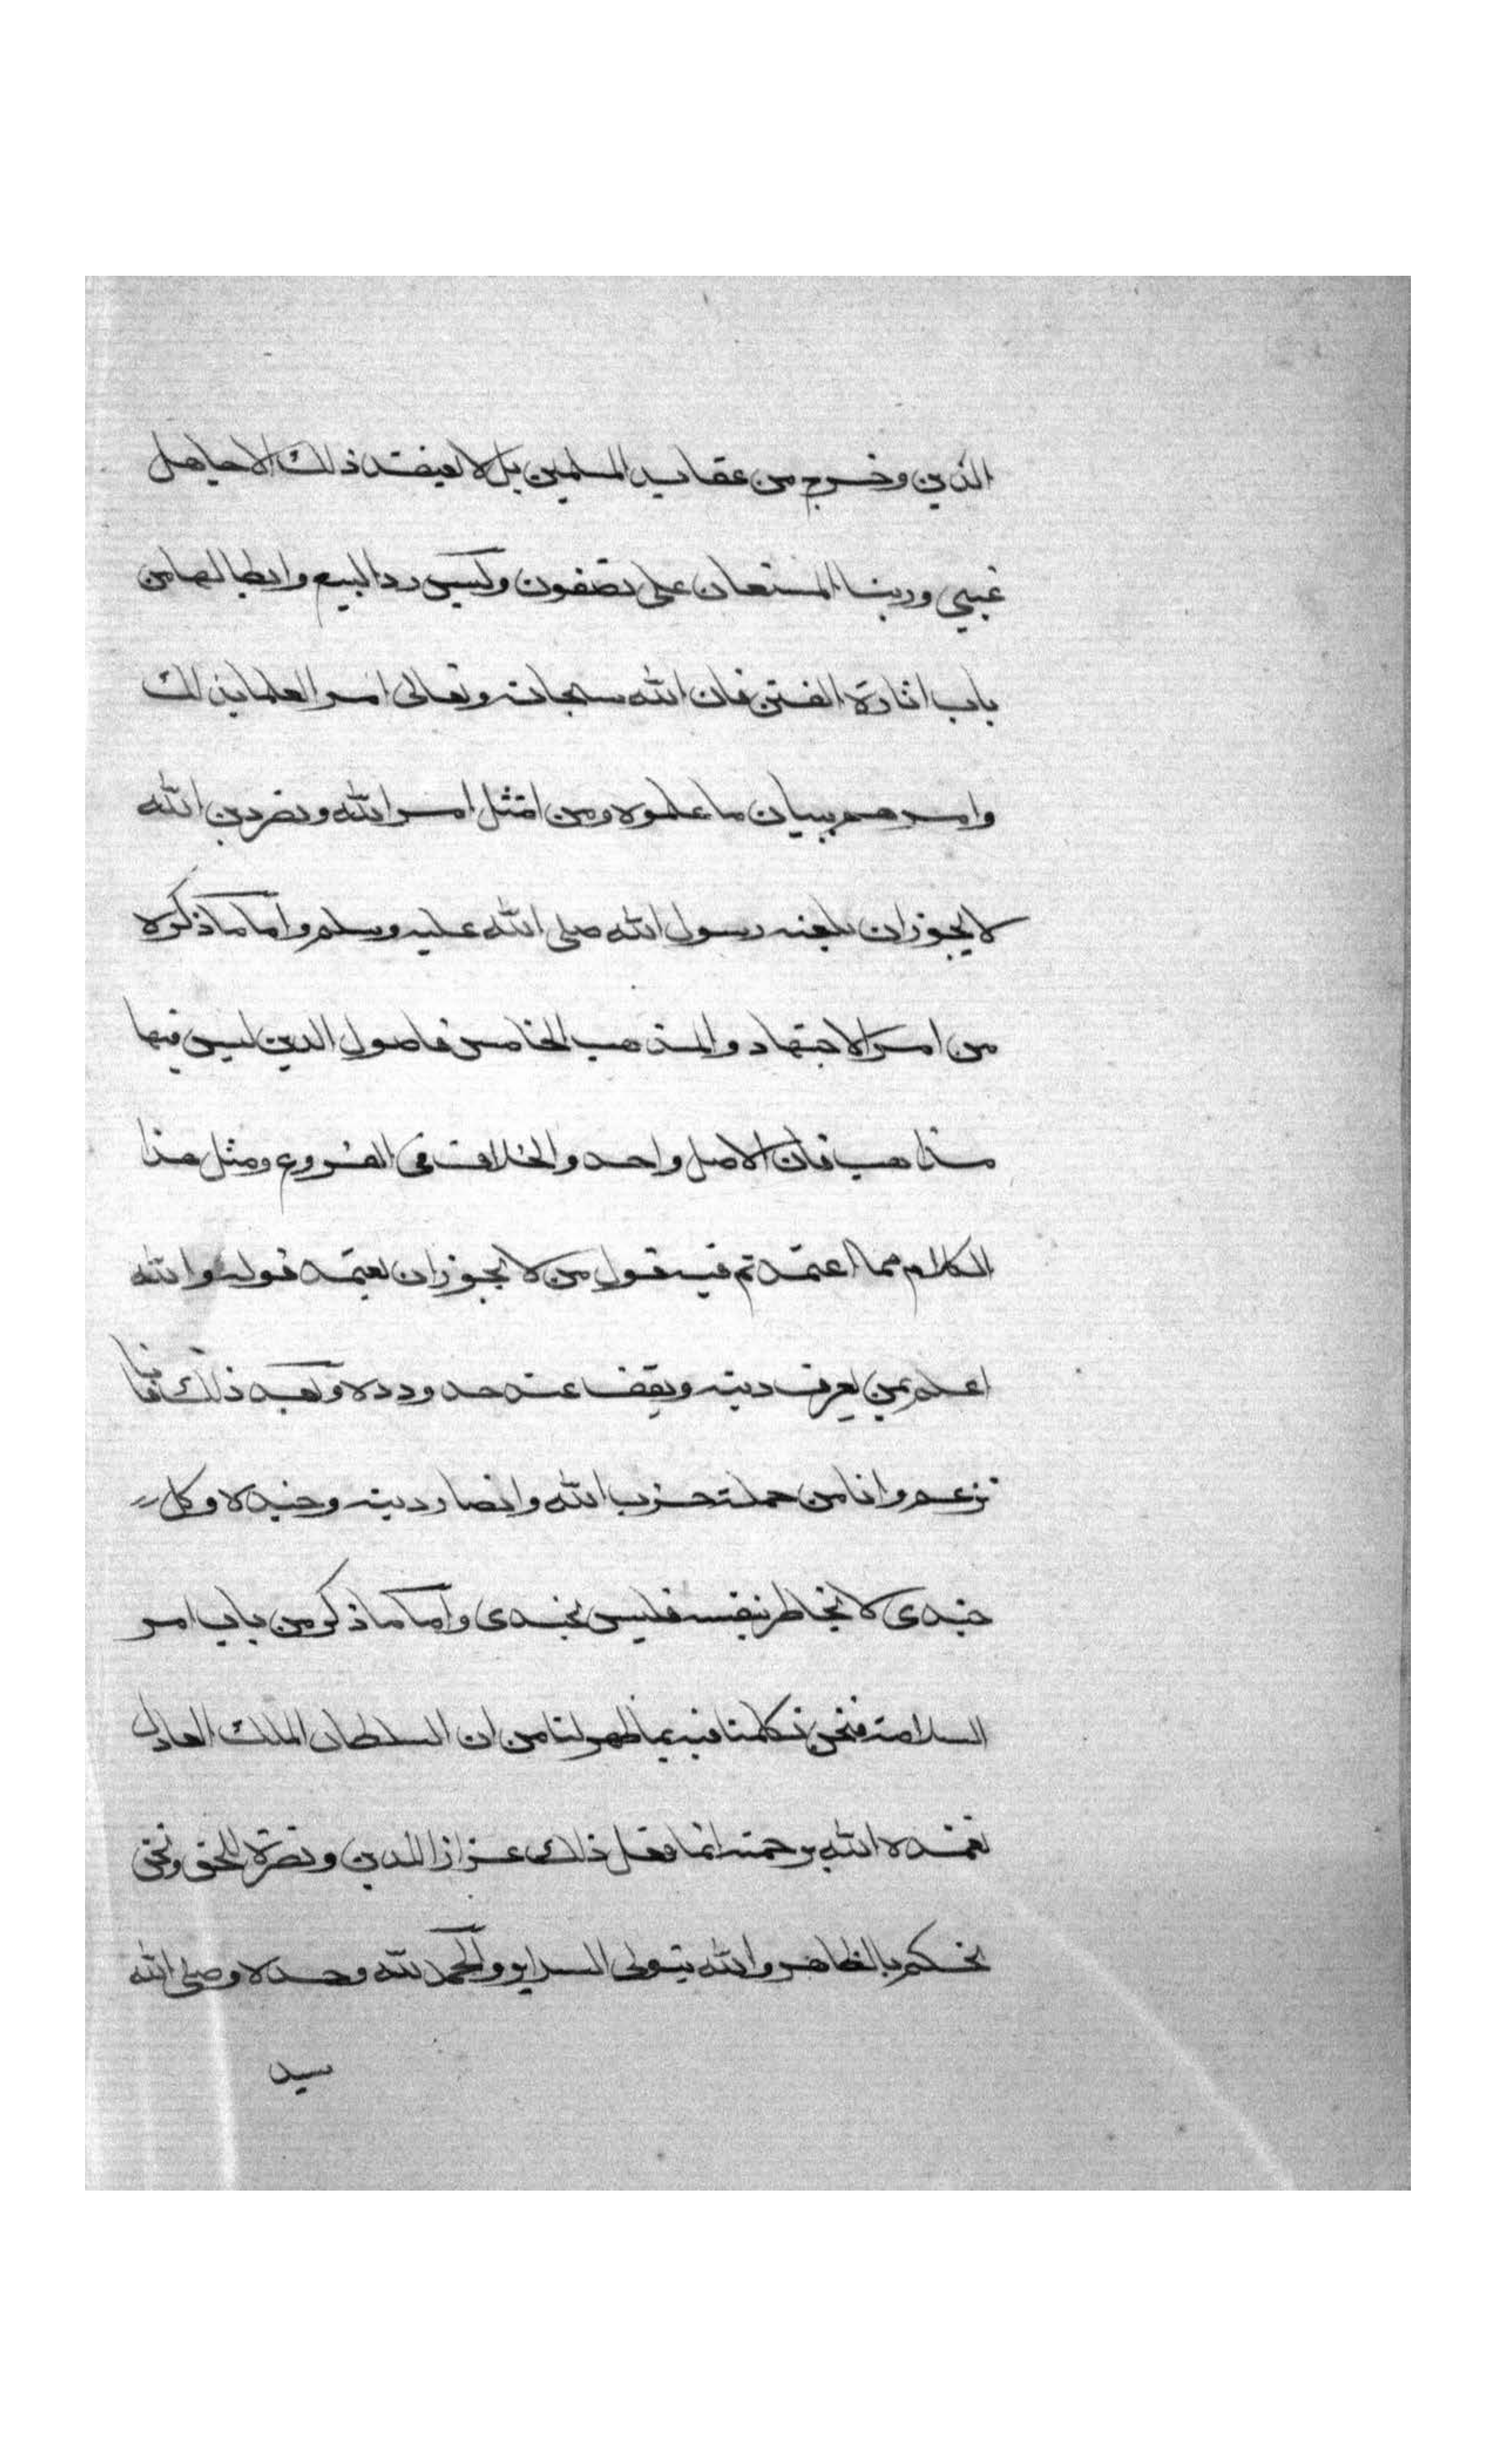 الدين وخروج من عقايد المسلمين بل لا يعتقد ذلك الا جاهل
غبي وربنا المستعان على تصفون وليس رد البدع وابطالها من
باب اثارة الفتن فان الله سبحانه وتعالى امر العلما بذلك
وامرهم ببيان ما علموه ومن امتثل امر الله ونصر دين الله
لا يجوز ان يلعنه رسول الله صلى الله عليه وسلم واما ما ذكره
من امر الاجتهاد والمذهب الخامس فاصول الدين ليس فيها
مذاهب فان الاصل واحد والخلاف في الفروع ومثل هذا
الكلام مما اعتمدتم فيه قول من لا يجوز ان يعتمد قوله والله
اعلم بمن يعرف دينه ويقف عند حدوده وبعد ذلك فانا
نزعم وانا من جملة حزب الله وانصار دينه وجنده وكل
جندي لا يخاطر بنفسه فليس بجندي واما ما ذكر من باب امر
السلامة فنحن تكلمنا فيه بما ظهر لنا من ان السلطان الملك العادل
تغمده الله برحمته انما فعل ذلك عزازا للدين ونصرة للحق ونحن
نحكم بالظاهر والله يتولى السراير والحمد لله وحده وصلى الله